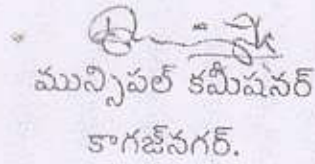 మున్సిపల్ కమీషనర్
కాగజ్‌నగర్.